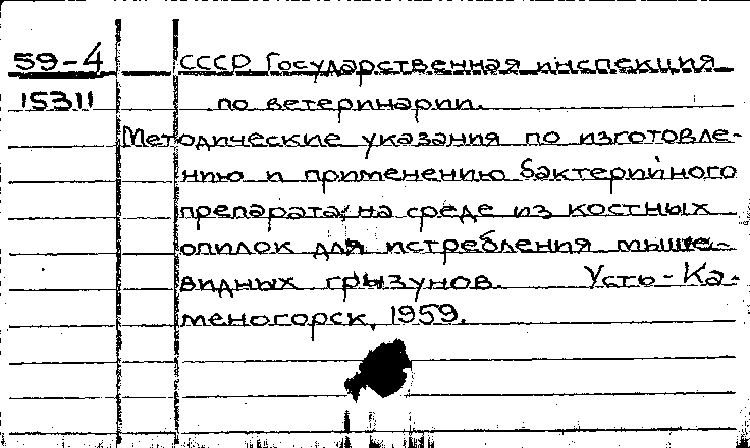 59-4 СССР Государственная инспекция
15311 по ветеринарии.
Методические указания по изготовле-
нию и применению бактерийного
препарата на среде из костных
опилок для истребления мыше-
видных грызунов. Усть-Ка-
меногорск, 1959.